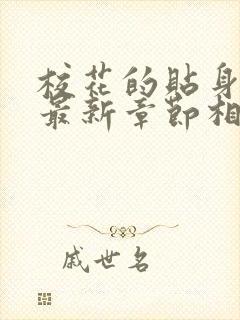 校花的贴身
最新章节相
戚世名